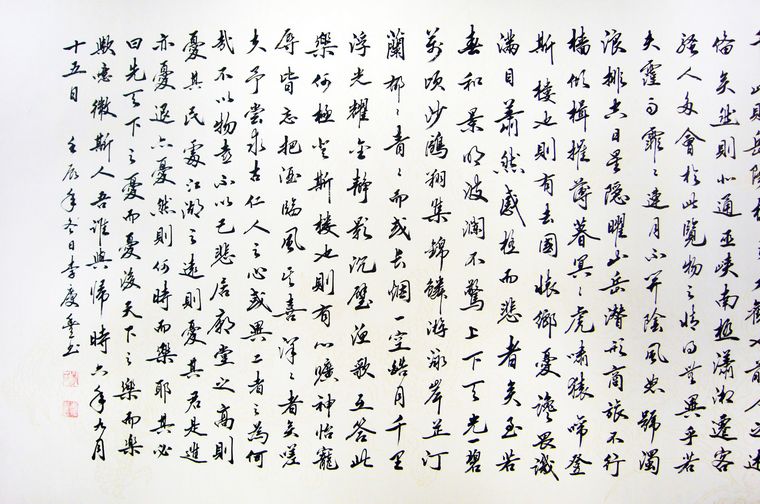 此則岳陽樓之大觀也前人之述
備矣然則北通巫峽南極瀟湘遷客
騷人多會於此覽物之情得無異乎若
夫霪雨霏々連月不開陰風怒號濁
浪排空日星隱曜山岳潛形商旅不行
檣傾楫摧薄暮冥々虎嘯猿啼登
斯樓也則有去國懷鄉憂讒畏譏
滿目蕭然感極而悲者矣至若
春和景明波瀾不驚上下天光一碧
萬頃沙鷗翔集錦鱗游泳岸芷汀
蘭郁々青々而或長烟一空皓月千里
浮光耀金靜影沉璧漁歌互答此
樂何極登斯樓也則有心曠神怡寵
辱皆忘把酒臨風其喜洋々者矣嗟
夫予嘗求古仁人之心或異二者之為何
哉不以物喜不以己悲居廟堂之高則
憂其民處江湖之遠則憂其君是進
亦憂退亦憂然則何時而樂耶其必
曰先天下之憂而憂後天下之樂而樂
歟噫微斯人吾誰與歸時六年九月
十五日 壬辰年冬日李慶書